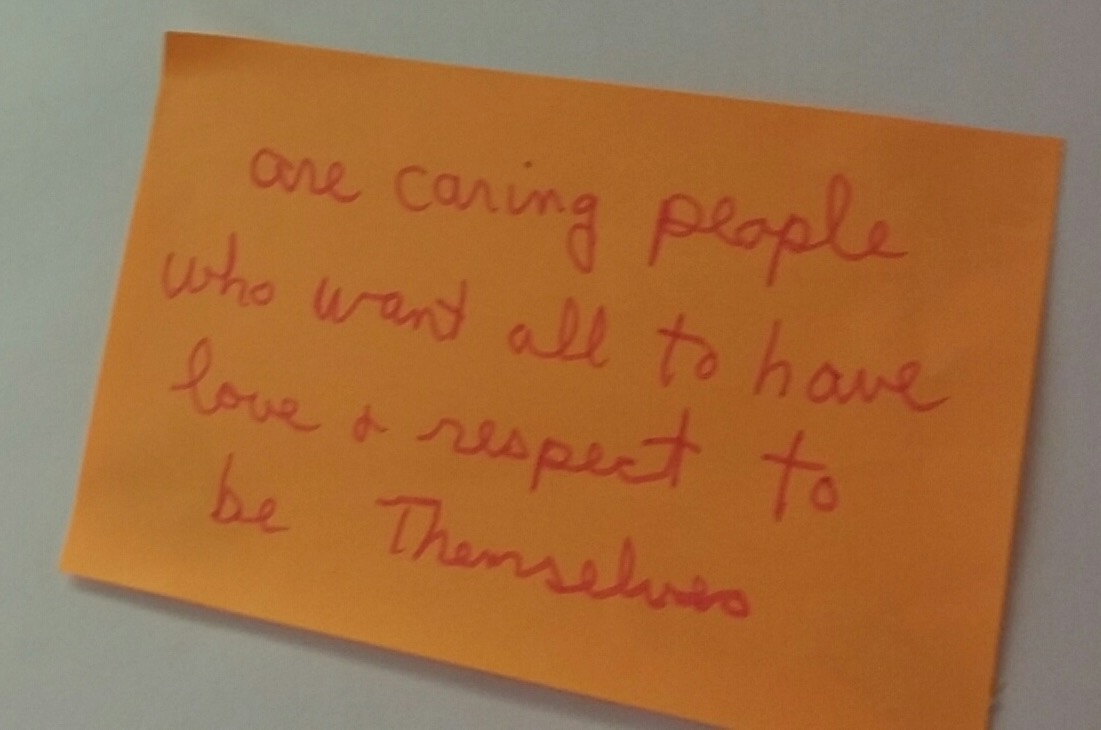 are caring people
who want all to have
love & respect to
be Themselves